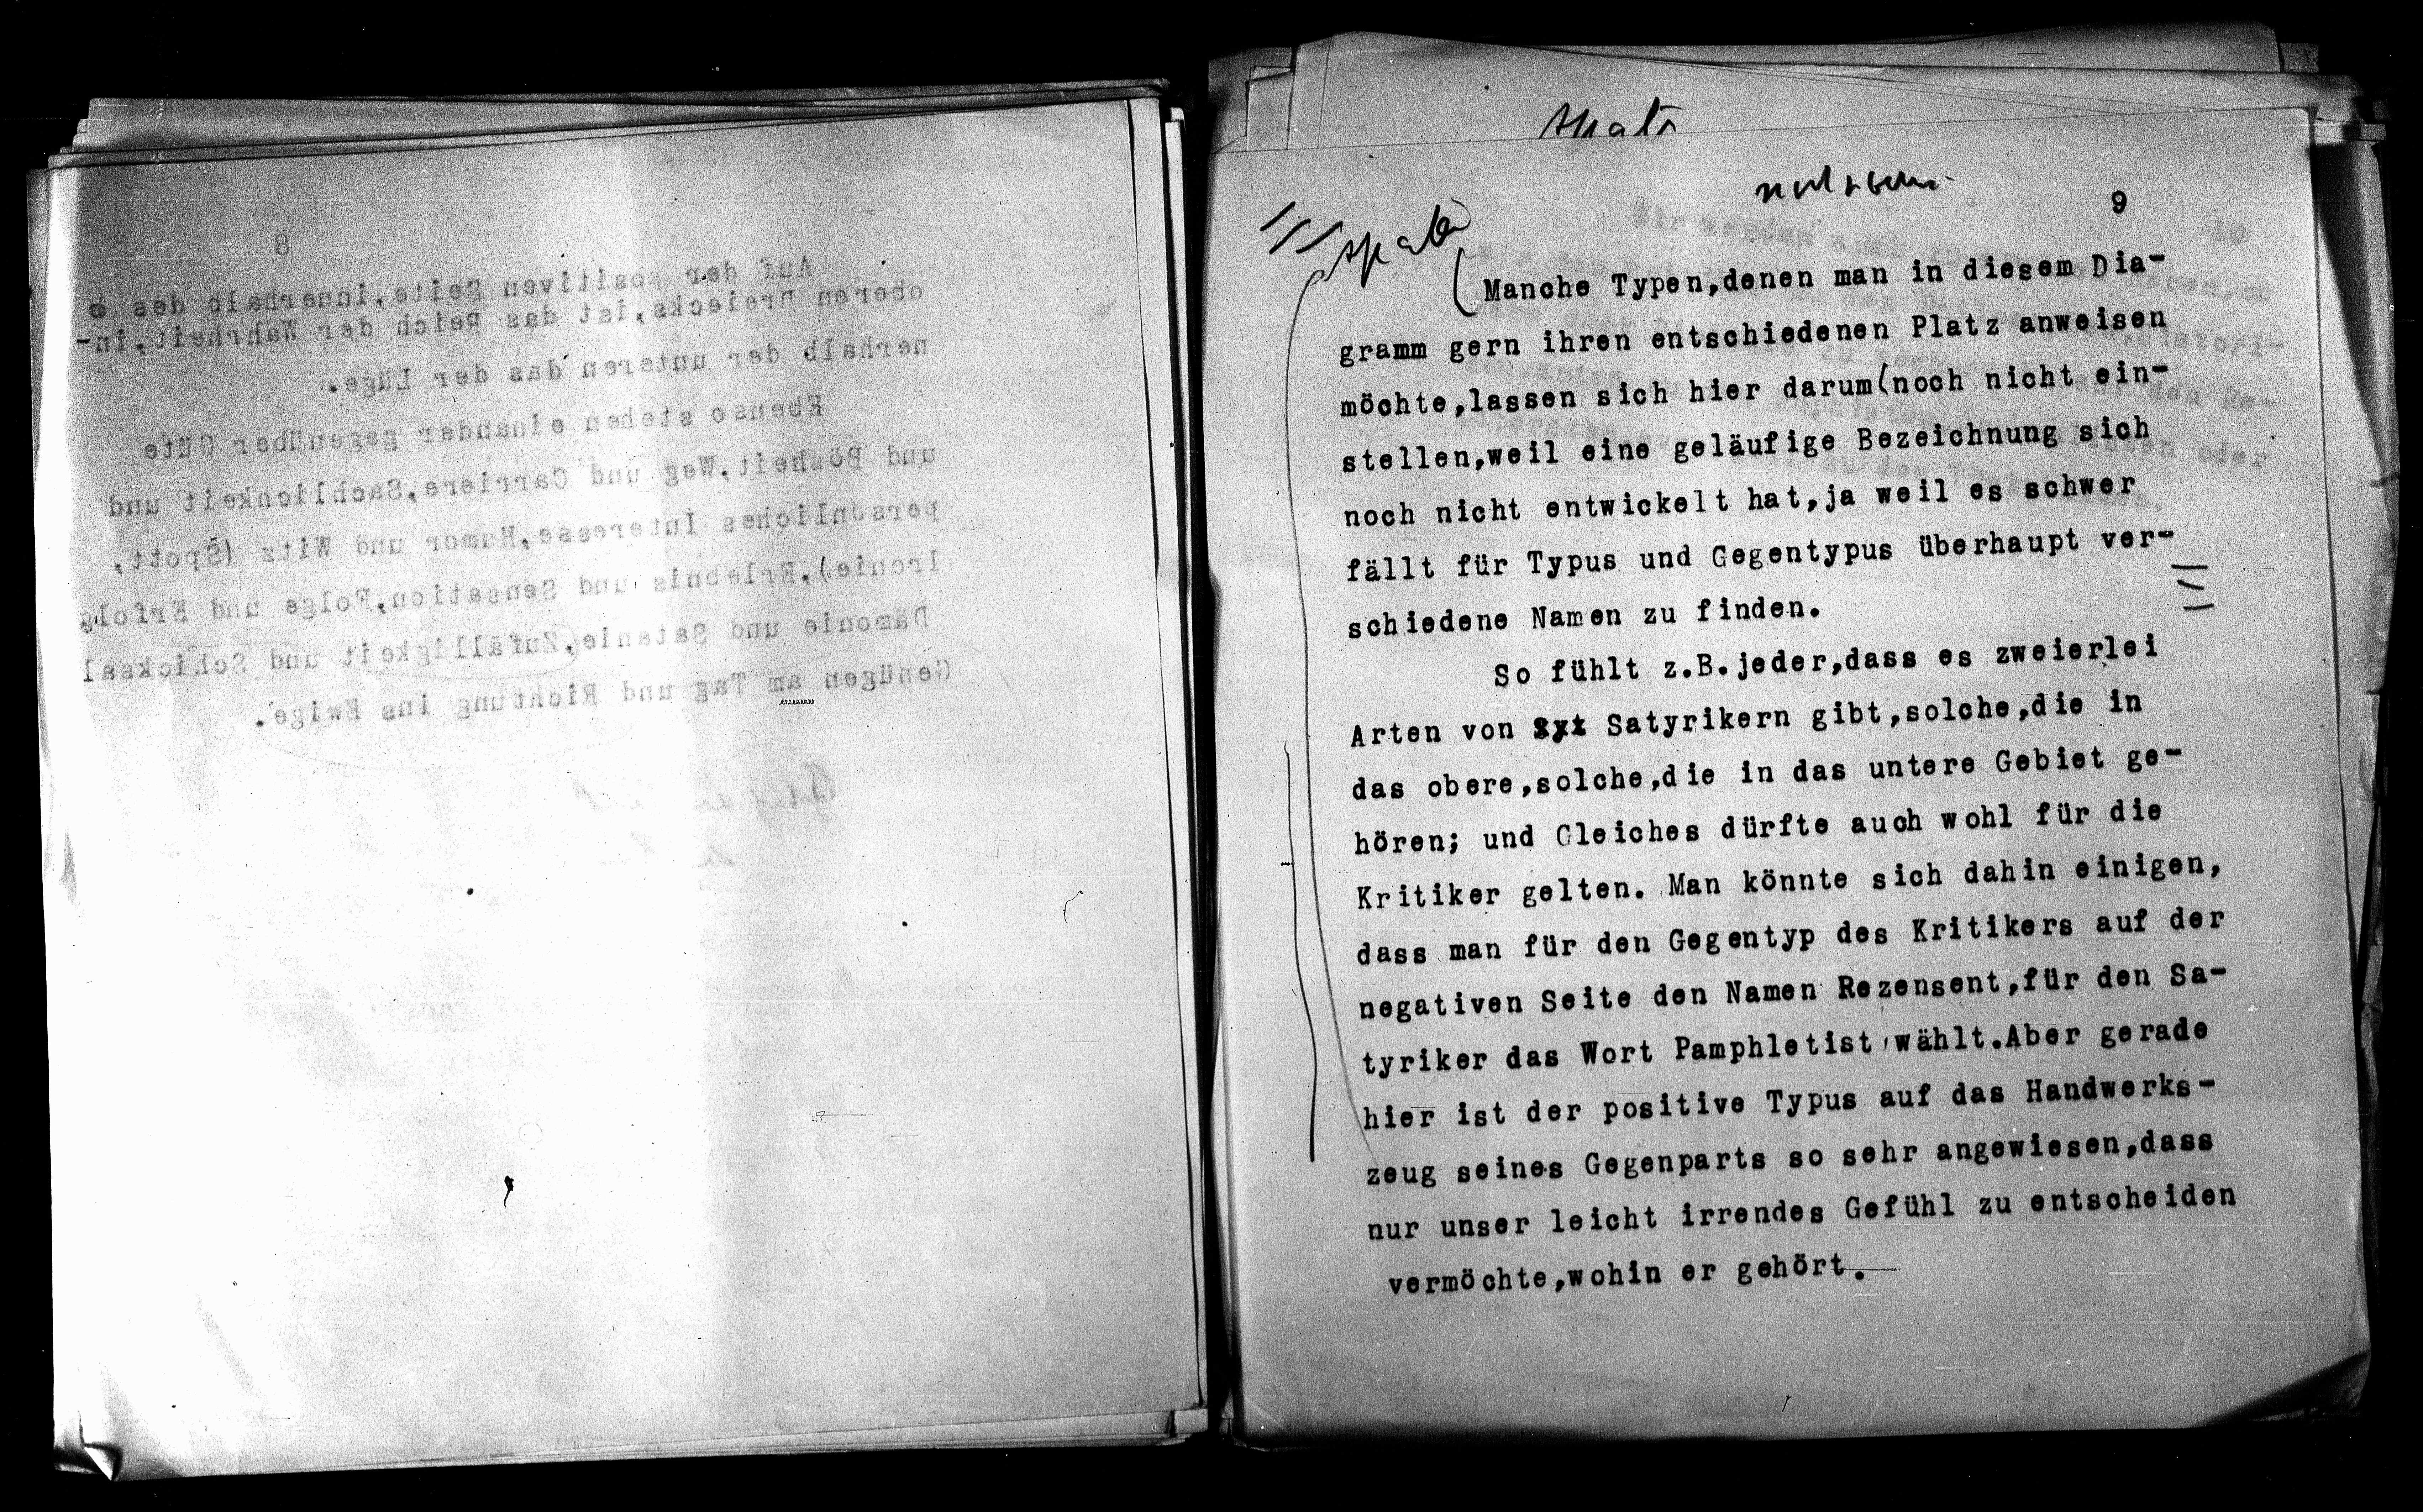 8
Auf der positiven Seite,innerhalb des
oberen Dreiecks,ist das Reich der Wahrheit,in-
nerhalb der unteren das der Lüge.
Ebenso stehen einander gegenüber Güte
und Bösheit,Weg und Carriere,Sachlichkeit und
persönliches Interesse,Humor und Witz (Spott,
Ironie),Erlebnis und Sensation,Folge und Erfolg
Dämonie und Satanie,Zufälligkeit und Schicksal
Genügen am Tag und Richtung ins Ewige.
9
(Manche Typen,denen man in diesem Dia-
gramm gern ihren entschiedenen Platz anweisen
möchte,lassen sich hier darum(noch nicht ein-
stellen,weil eine geläufige Bezeichnung sich
noch nicht entwickelt hat,ja weil es schwer
fällt für Typus und Gegentypus überhaupt ver-
schiedene Namen zu finden.
So fühlt z.B.jeder,dass es zweierlei
Arten von Satyrikern gibt,solche,die in
das obere,solche,die in das untere Gebiet ge-
hören; und Gleiches dürfte auch wohl für die
Kritiker gelten. Man könnte sich dahin einigen,
dass man für den Gegentyp des Kritikers auf der
negativen Seite den Namen Rezensent,für den Sa-
tyriker das Wort Pamphletist wählt.Aber gerade
hier ist der positive Typus auf das Handwerks-
zeug seines Gegenparts so sehr angewiesen,dass
nur unser leicht irrendes Gefühl zu entscheiden
vermöchte,wohin er gehört.